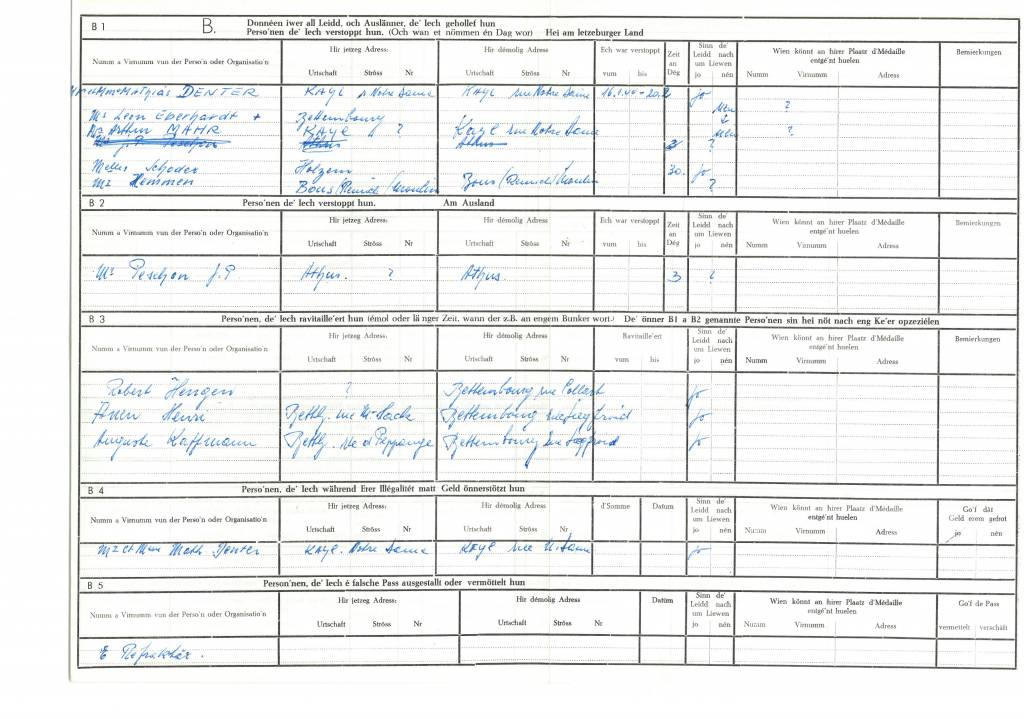 B 1 B. Donnéen iwer all Leidd, och Auslänner, de' Iech gehollef hun
Perso'nen de' Iech verstoppt hun. (Och wan et nömmen én Dag wor) Hei am letzeburger Land
Numm a Virnumm vun der Perso'n oder Organisatio'n
Hir jetzeg Adress:
Urtschaft Ströss Nr
Hir démolig Adress:
Urtschaft Ströss Nr
Ech war verstoppt
vum bis
Zeit an Dég
Sinn de' Leidd nach um Liewen
jo nén
Wien könnt an hirer Plaatz d'Médaille entgé'nt huelen
Numm Virnumm Adress
Bemierkungen
Mathias DENTER KAYL r Notre Dame KAYL rue Notre Dame 16.1.44 - jo
Mr Leon Eberhardt + Bettembourg Nén ?
Mr Arthur MAHR KAYL ? Kayl rue Notre Dame Nén ?
Athus Athus 3 ?
Schoder Holzem 30. jo
Mr Hemmen Bous (Remich) Moulin Bous (Remich) Moulin ?
B 2 Perso'nen de' Iech verstoppt hun. Am Ausland
Numm a Virnumm vun der Perso'n oder Organisatio'n
Hir jetzeg Adress:
Urtschaft Ströss Nr
Hir démolig Adress:
Urtschaft Ströss Nr
Ech war verstoppt
vum bis
Zeit an Dég
Sinn de' Leidd nach um Liewen
jo nén
Wien könnt an hirer Plaatz d'Médaille entgé'nt huelen
Numm Virnumm Adress
Bemierkungen
Mr Peschon J.P. Athus. ? Athus. 3 ?
B 3 Perso'nen, de' Iech ravitaille'ert hun (émol oder länger Zeit, wann der z.B. an engem Bunker wort.) De' önner B1 a B2 genannte Perso'nen sin hei nöt nach eng Ke'er opzeziélen
Numm a Virnumm vun der Perso'n oder Organisatio'n
Hir jetzeg Adress:
Urtschaft Ströss Nr
Hir démolig Adress:
Urtschaft Ströss Nr
Ravitaille'ert
vum bis
Sinn de' Leidd nach um Liewen
jo nén
Wien könnt an hirer Plaatz d'Médaille entgé'nt huelen
Numm Virnumm Adress
Bemierkungen
Robert Hengen ? Bettembourg rue Collart jo
Henri Bettbg. rue Bettembourg rue Siegfroid jo
Auguste Kaffmann Bettbg. rte d Peppange Bettembourg rue Siegfroid jo
B 4 Perso'nen, de' Iech während Erer Illégalitét matt Geld önnerstötzt hun
Numm a Virnumm vun der Perso'n oder Organisatio'n
Hir jetzeg Adress:
Urtschaft Ströss Nr
Hir démolig Adress:
Urtschaft Ströss Nr
d'Somme
Datum
Sinn de' Leidd nach um Liewen
jo nén
Wien könnt an hirer Plaatz d'Médaille entgé'nt huelen
Numm Virnumm Adress
Go'f dât Geld erem gefrot
jo nén
Mr et Mme Math Denter KAYL. Notre Dame KAYL rue N. Dame jo
B 5 Person'nen, de' Iech é falsche Pass ausgestallt oder vermöttelt hun
Numm a Virnumm vun der Perso'n oder Organisatio'n
Hir jetzeg Adress:
Urtschaft Ströss Nr
Hir démolig Adress
Urtschaft Ströss Nr
Datum
Sinn de' Leidd nach um Liewen
jo nén
Wien könnt an hirer Plaatz d'Médaille entgé'nt huelen
Numm Virnumm Adress
Go'f de Pass
vermettelt verschâft
E Refraktär.